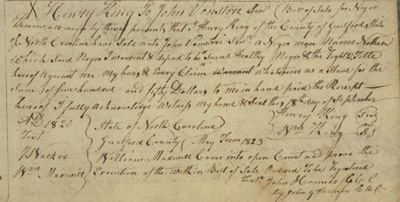 Henry King To John Vonstore Senr Bill of Sale for Negro
Know all men by these presents that I Henry King of the County of Guilford State
of North Carolina have Sold unto John Vonstore Senr a Negro man Named Nathan
Which Said Negro I warrant & defend to be Sound Healthy Negro & the Right & Title
hereof against me My heirs & Every Claim Warrant Whatsoever as a Slave for the
Sum of five hundred and fifty Dollars to me in hand paid the Receipt
hereof I fully Acknowledge Witness my hand & Seal this 18th day of September
AD 1823 State of North Carolina Henry King Seal
Test Guilford County May Term 1823 Wm King
William Maxwell Came into open Court and prove the
Wm Maxwell Execution of the Within Bill of Sale Ordered To be Registered
Test John Hanner
By John